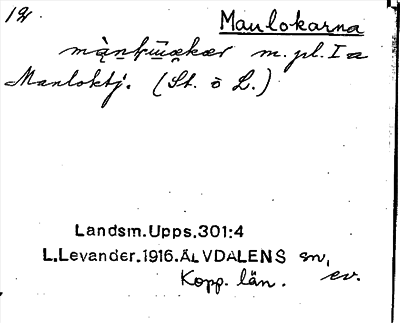 12 Manlokarna
m. pl. I a
Manloktj. (St. o L.)
Landsm. Upps. 301:4
L. Levander. 1916. ÄLVDALENS sn,
Kopp. län. ev.